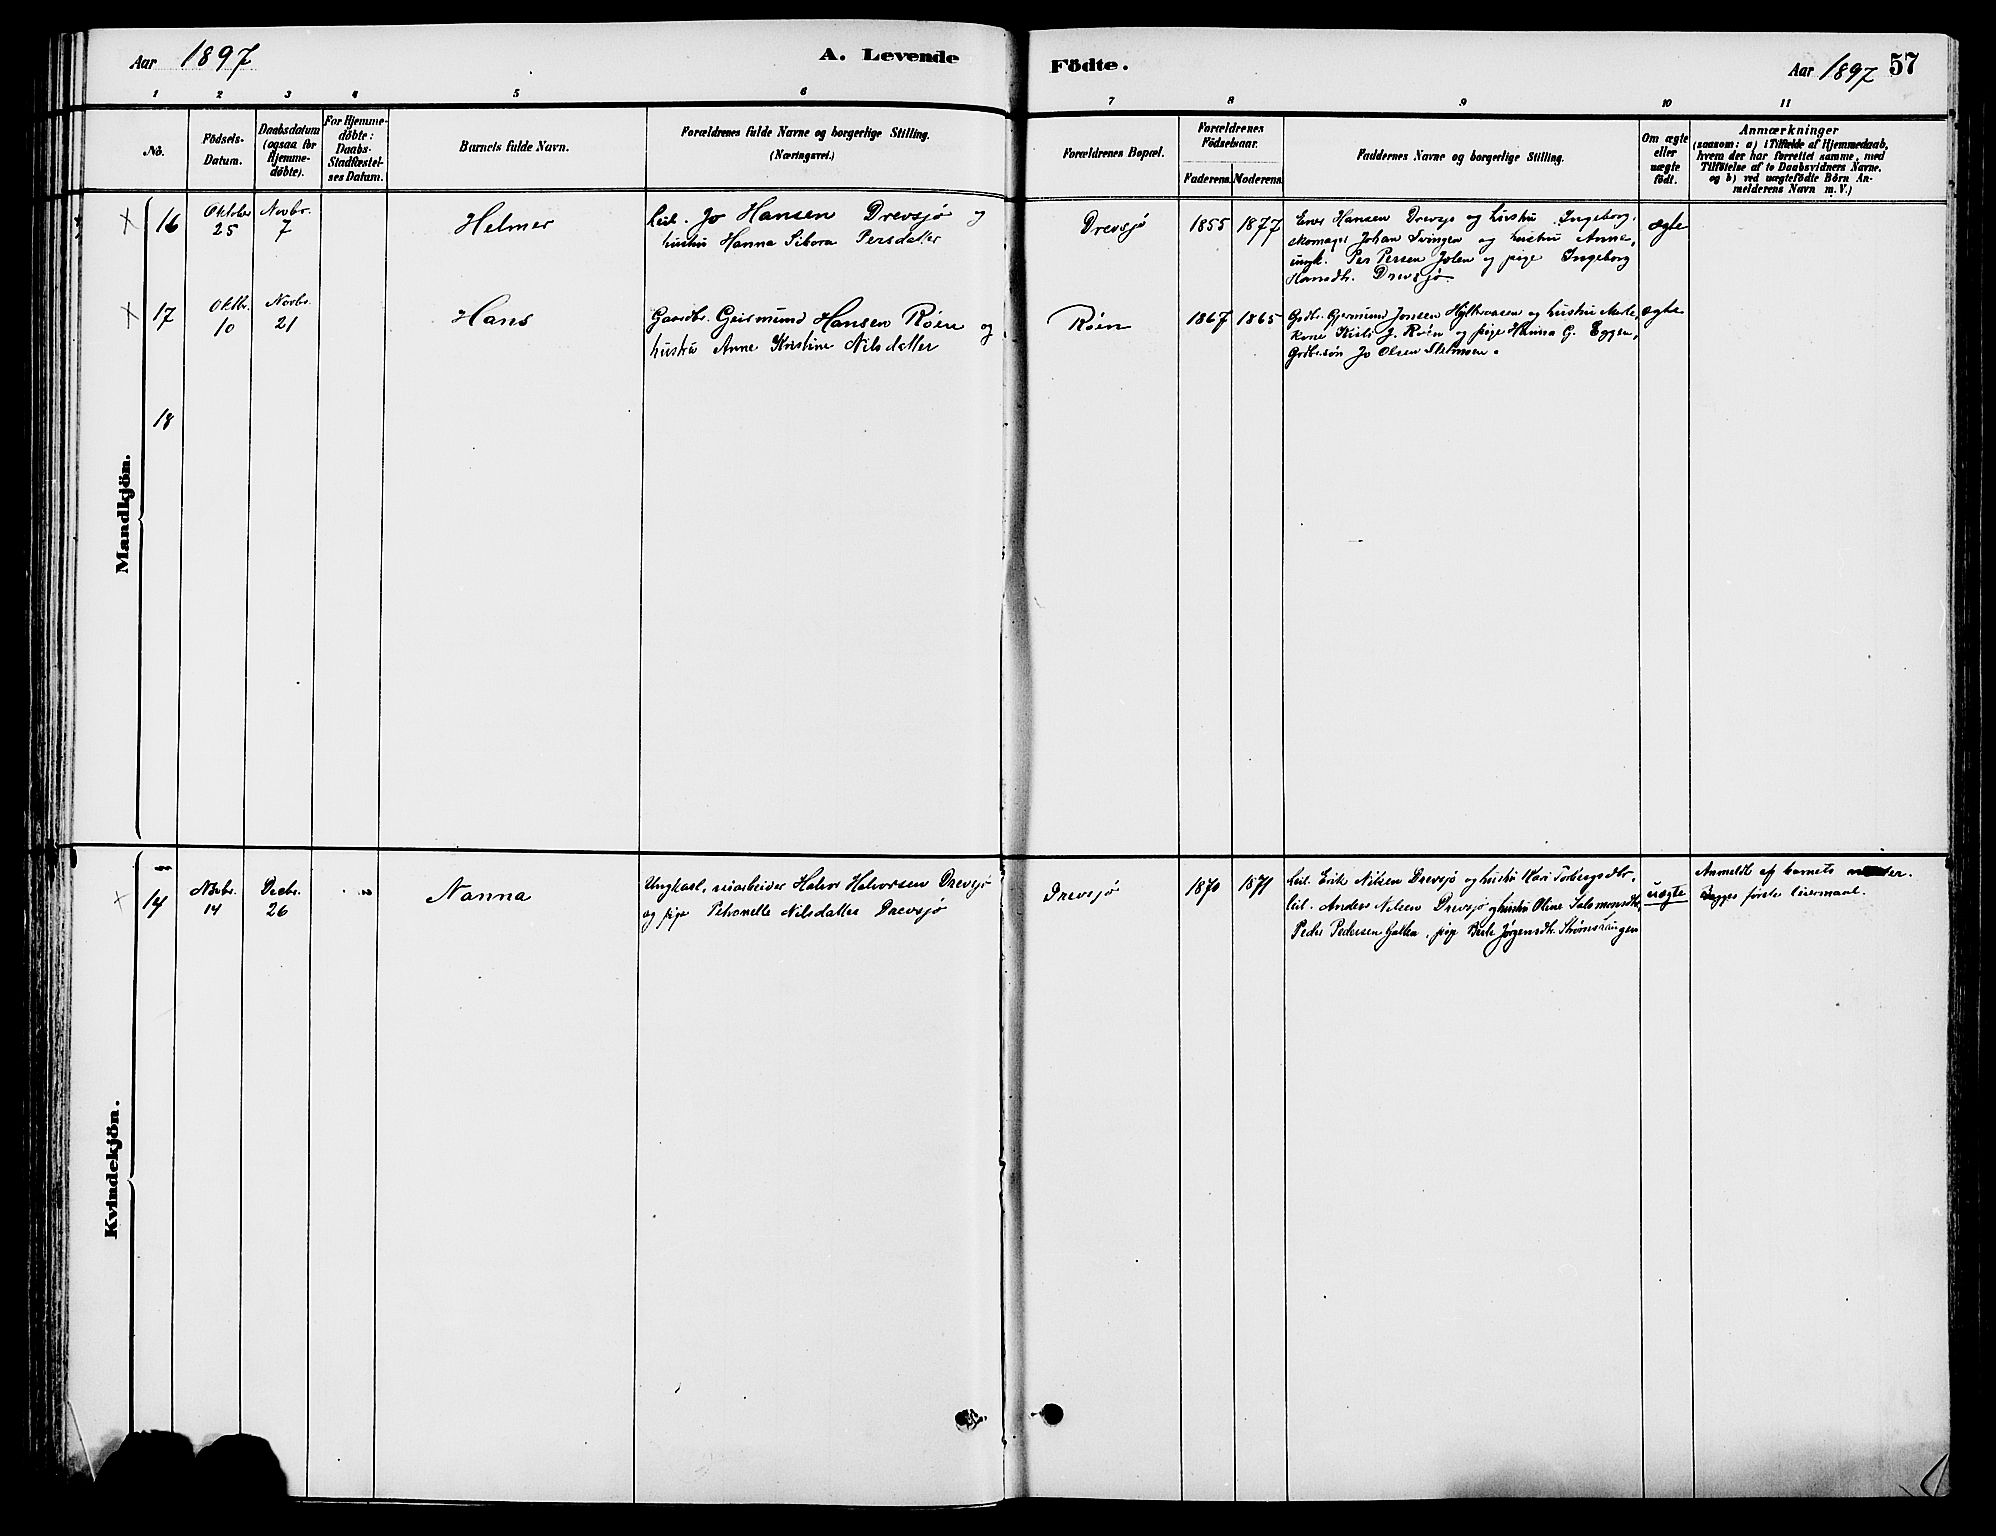 Aar 1897
A. Levende Födte.
Aar 1897 57
1 2 3 4 5 6 7 8 9 10 11
No.
Födsels-
Datum.
Daabsdatum
(ogsaa for
Hjemme-
döbte).
For Hjemme-
döbte:
Daabs-
Stadfæstel-
ses Datum.
Barnets fulde Navn.
Forældrenes fulde Navne og borgerlige Stilling.
(Næringsvei.)
Forældrenes Bopæl.
Forældrenes
Födselsaar.
Faderens. Moderens.
Faddernes Navne og borgerlige Stilling.
Om ægte
eller
uægte
födt.
Anmærkninger
(saasom: a) i Tilfælde af Hjemmedaab,
hvem der har forrettet samme, med
Tilföielse af to Daabsvidners Navne,
og b) ved uægtefödte Börn An-
melderens Navn m. V.)
Mandkjön.
16
Oktober
25
Novbr.
7
Helmer
Leil. Jo Hansen Drevsjø og
hustru Hanna Persdatter
Drevsjø
1855 1877
Hansen Drevsjø og hustru Ingeborg,
skomager Johan Svingen og hustru Anne,
ungk. Per Persen Jolen og pige Ingeborg
Hansdtr. Drevsjø.
ægte
17
Oktbr.
10
Novbr.
21
Hans
Gaardbr. Geirmund Hansen Røen og
hustru Anne Kristine Nilsdatter
Røen
1867 1865
Gdbr. Gjermund Jonsen og hustru
kone J. Røen og pige Hanna G. Eggen,
Gdbr.søn Jo Olsen
ægte
18
Kvindekjön.
14
Novbr.
14
Decbr.
26
Nanna
Ungkarl, Halvor Halvorsen Drevsjø
og pige Petronelle Nilsdatter Drevsjø
Drevsjø
1870 1871
Leil. Erik Nilsen Drevsjø og hustru Kari Torbergsdtr.,
leil. Anders Nilsen Drevsjø og hustru Oline Salomonsdtr,
Peder Pedersen Galten, pige Berte Jørgensdtr. Strømshaugen
uægte
Anmeldt af barnets moder.
Begges første leiermaal.